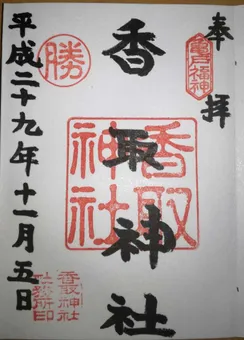 奉拝
亀戸福神
香取神社
香取神社
勝
平成二十九年十一月五日
香取神社社務所印